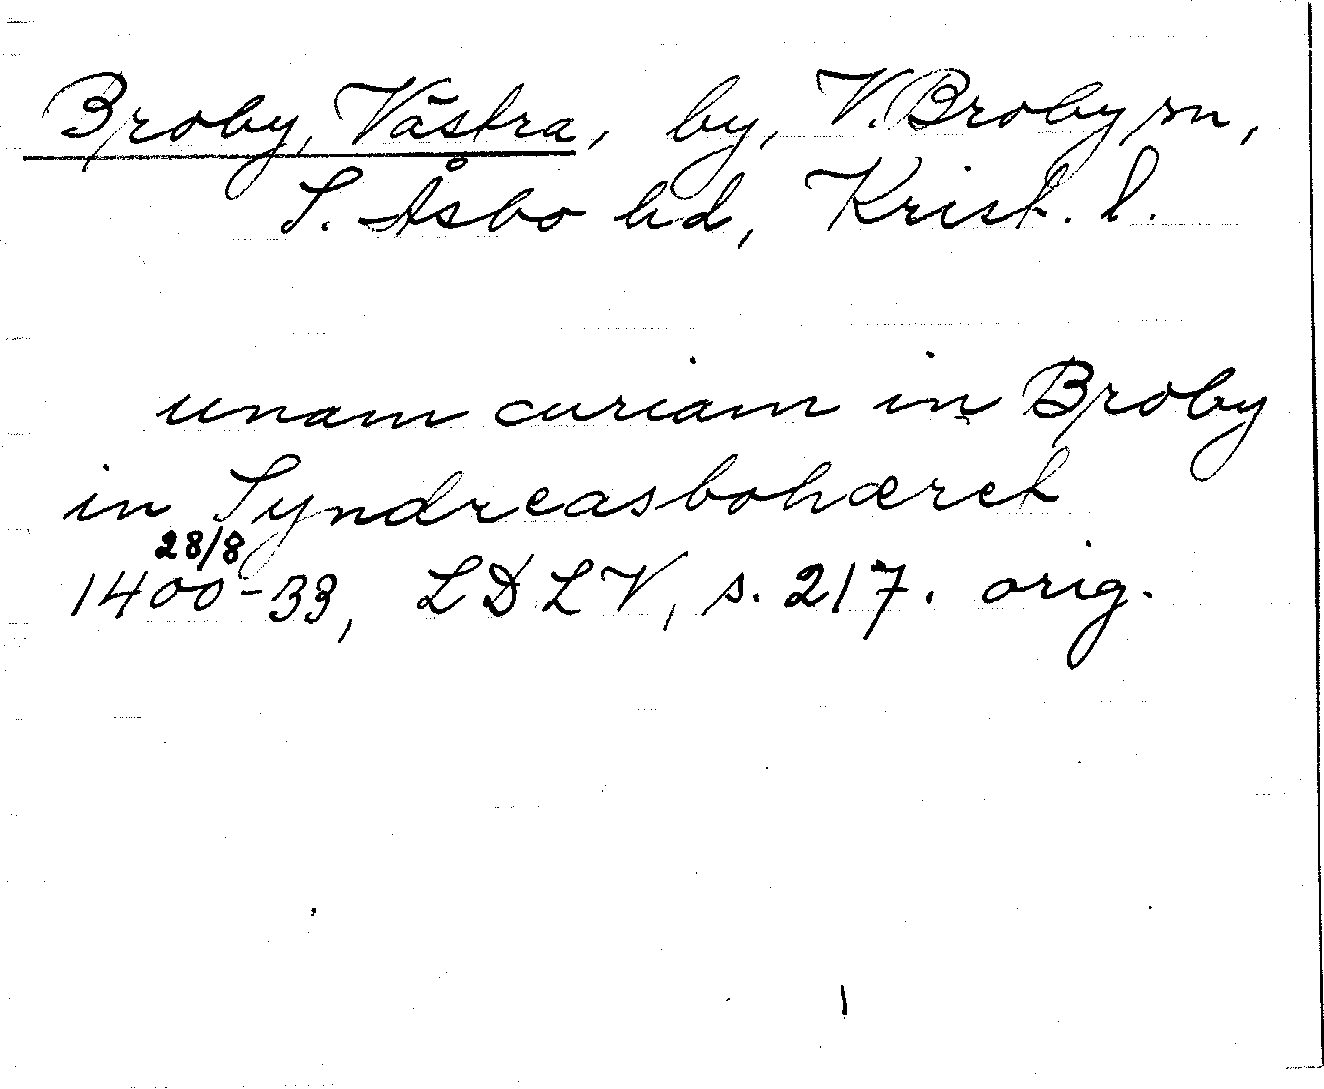 Broby, Västra, by, V. Broby sn,
S. Åsbo hd, Krist. l.
unam curiam in Broby
in Syndreasbohæret
28/8
1400-33, LDLV, s. 217. orig.